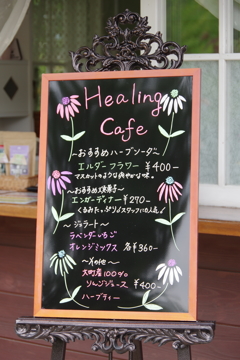 Healing
Cafe
～おすすめハーブソーダ～
エルダーフラワー ¥400-
マスカットのような爽やかな味。
～おすすめ焼菓子～
エンガーディナー ¥270-
くるみたっぷり♪スタッフに人気♪
～ジェラート～
ラベンダーいちご
オレンジミックス 各¥360-
～その他～
大町産100%
りんごジュース ¥400-
ハーブティー